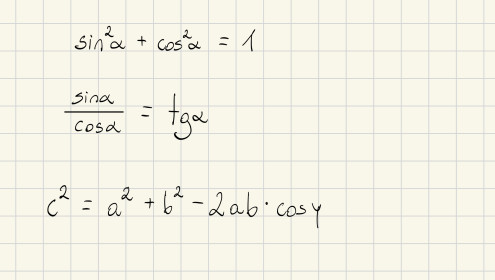 sin²α + cos²α = 1
sinα / cosα = tgα
c² = a² + b² - 2ab · cosγ